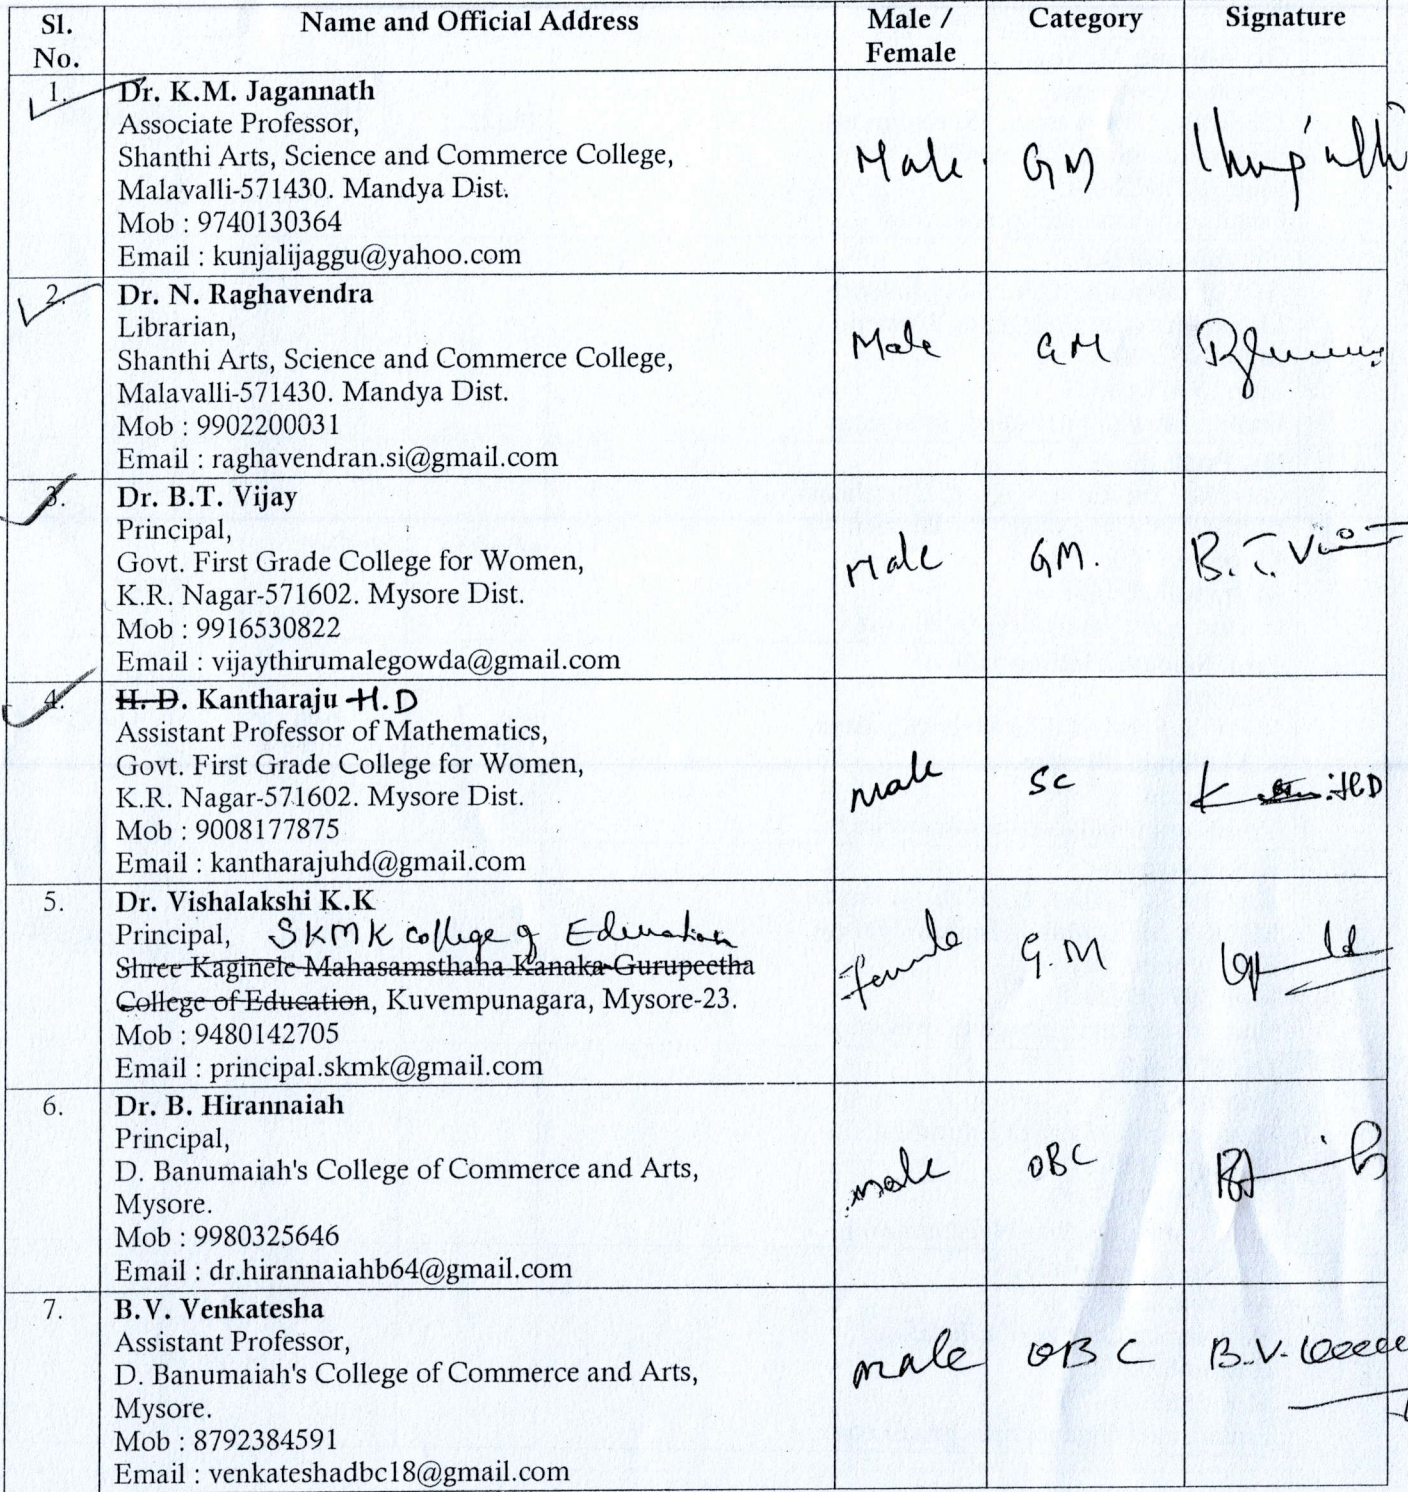 Sl. No. Name and Official Address Male / Female Category Signature
1. Dr. K.M. Jagannath
Associate Professor,
Shanthi Arts, Science and Commerce College,
Malavalli-571430. Mandya Dist.
Mob : 9740130364
Email : kunjalijaggu@yahoo.com
Male. GM
2. Dr. N. Raghavendra
Librarian,
Shanthi Arts, Science and Commerce College,
Malavalli-571430. Mandya Dist.
Mob : 9902200031
Email : raghavendran.si@gmail.com
Male GM
3. Dr. B.T. Vijay
Principal,
Govt. First Grade College for Women,
K.R. Nagar-571602. Mysore Dist.
Mob : 9916530822
Email : vijaythirumalegowda@gmail.com
Male GM. B.T.
4. H. D. Kantharaju H.D
Assistant Professor of Mathematics,
Govt. First Grade College for Women,
K.R. Nagar-571602. Mysore Dist.
Mob : 9008177875
Email : kantharajuhd@gmail.com
male SC H.D
5. Dr. Vishalakshi K.K
Principal, SKMK college of Education
Shree Kaginele Mahasamsthana Kanaka Gurupeetha
College of Education, Kuvempunagara, Mysore-23.
Mob : 9480142705
Email : principal.skmk@gmail.com
female G.M
6. Dr. B. Hirannaiah
Principal,
D. Banumaiah's College of Commerce and Arts,
Mysore.
Mob : 9980325646
Email : dr.hirannaiahb64@gmail.com
male OBC
7. B.V. Venkatesha
Assistant Professor,
D. Banumaiah's College of Commerce and Arts,
Mysore.
Mob : 8792384591
Email : venkateshadbc18@gmail.com
male OBC B.V.